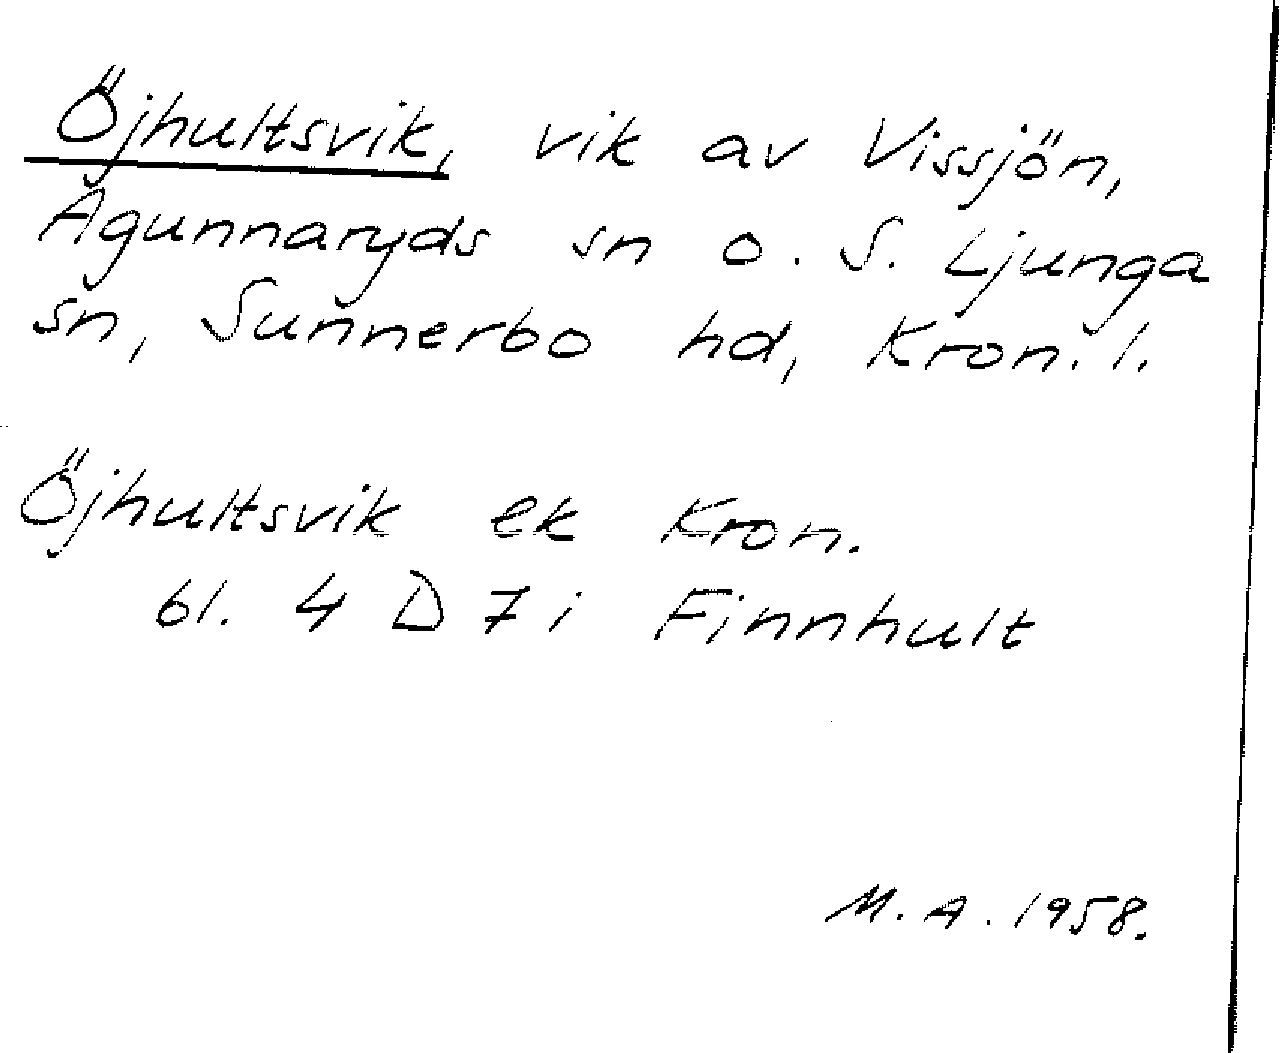 Öjhultsvik, vik av Vissjön,
Agunnaryds sn o. S. Ljunga
sn, Sunnerbo hd, Kron. l.
Öjhultsvik ek Kron.
bl. 4 D 7 i Finnhult
M. A. 1958.